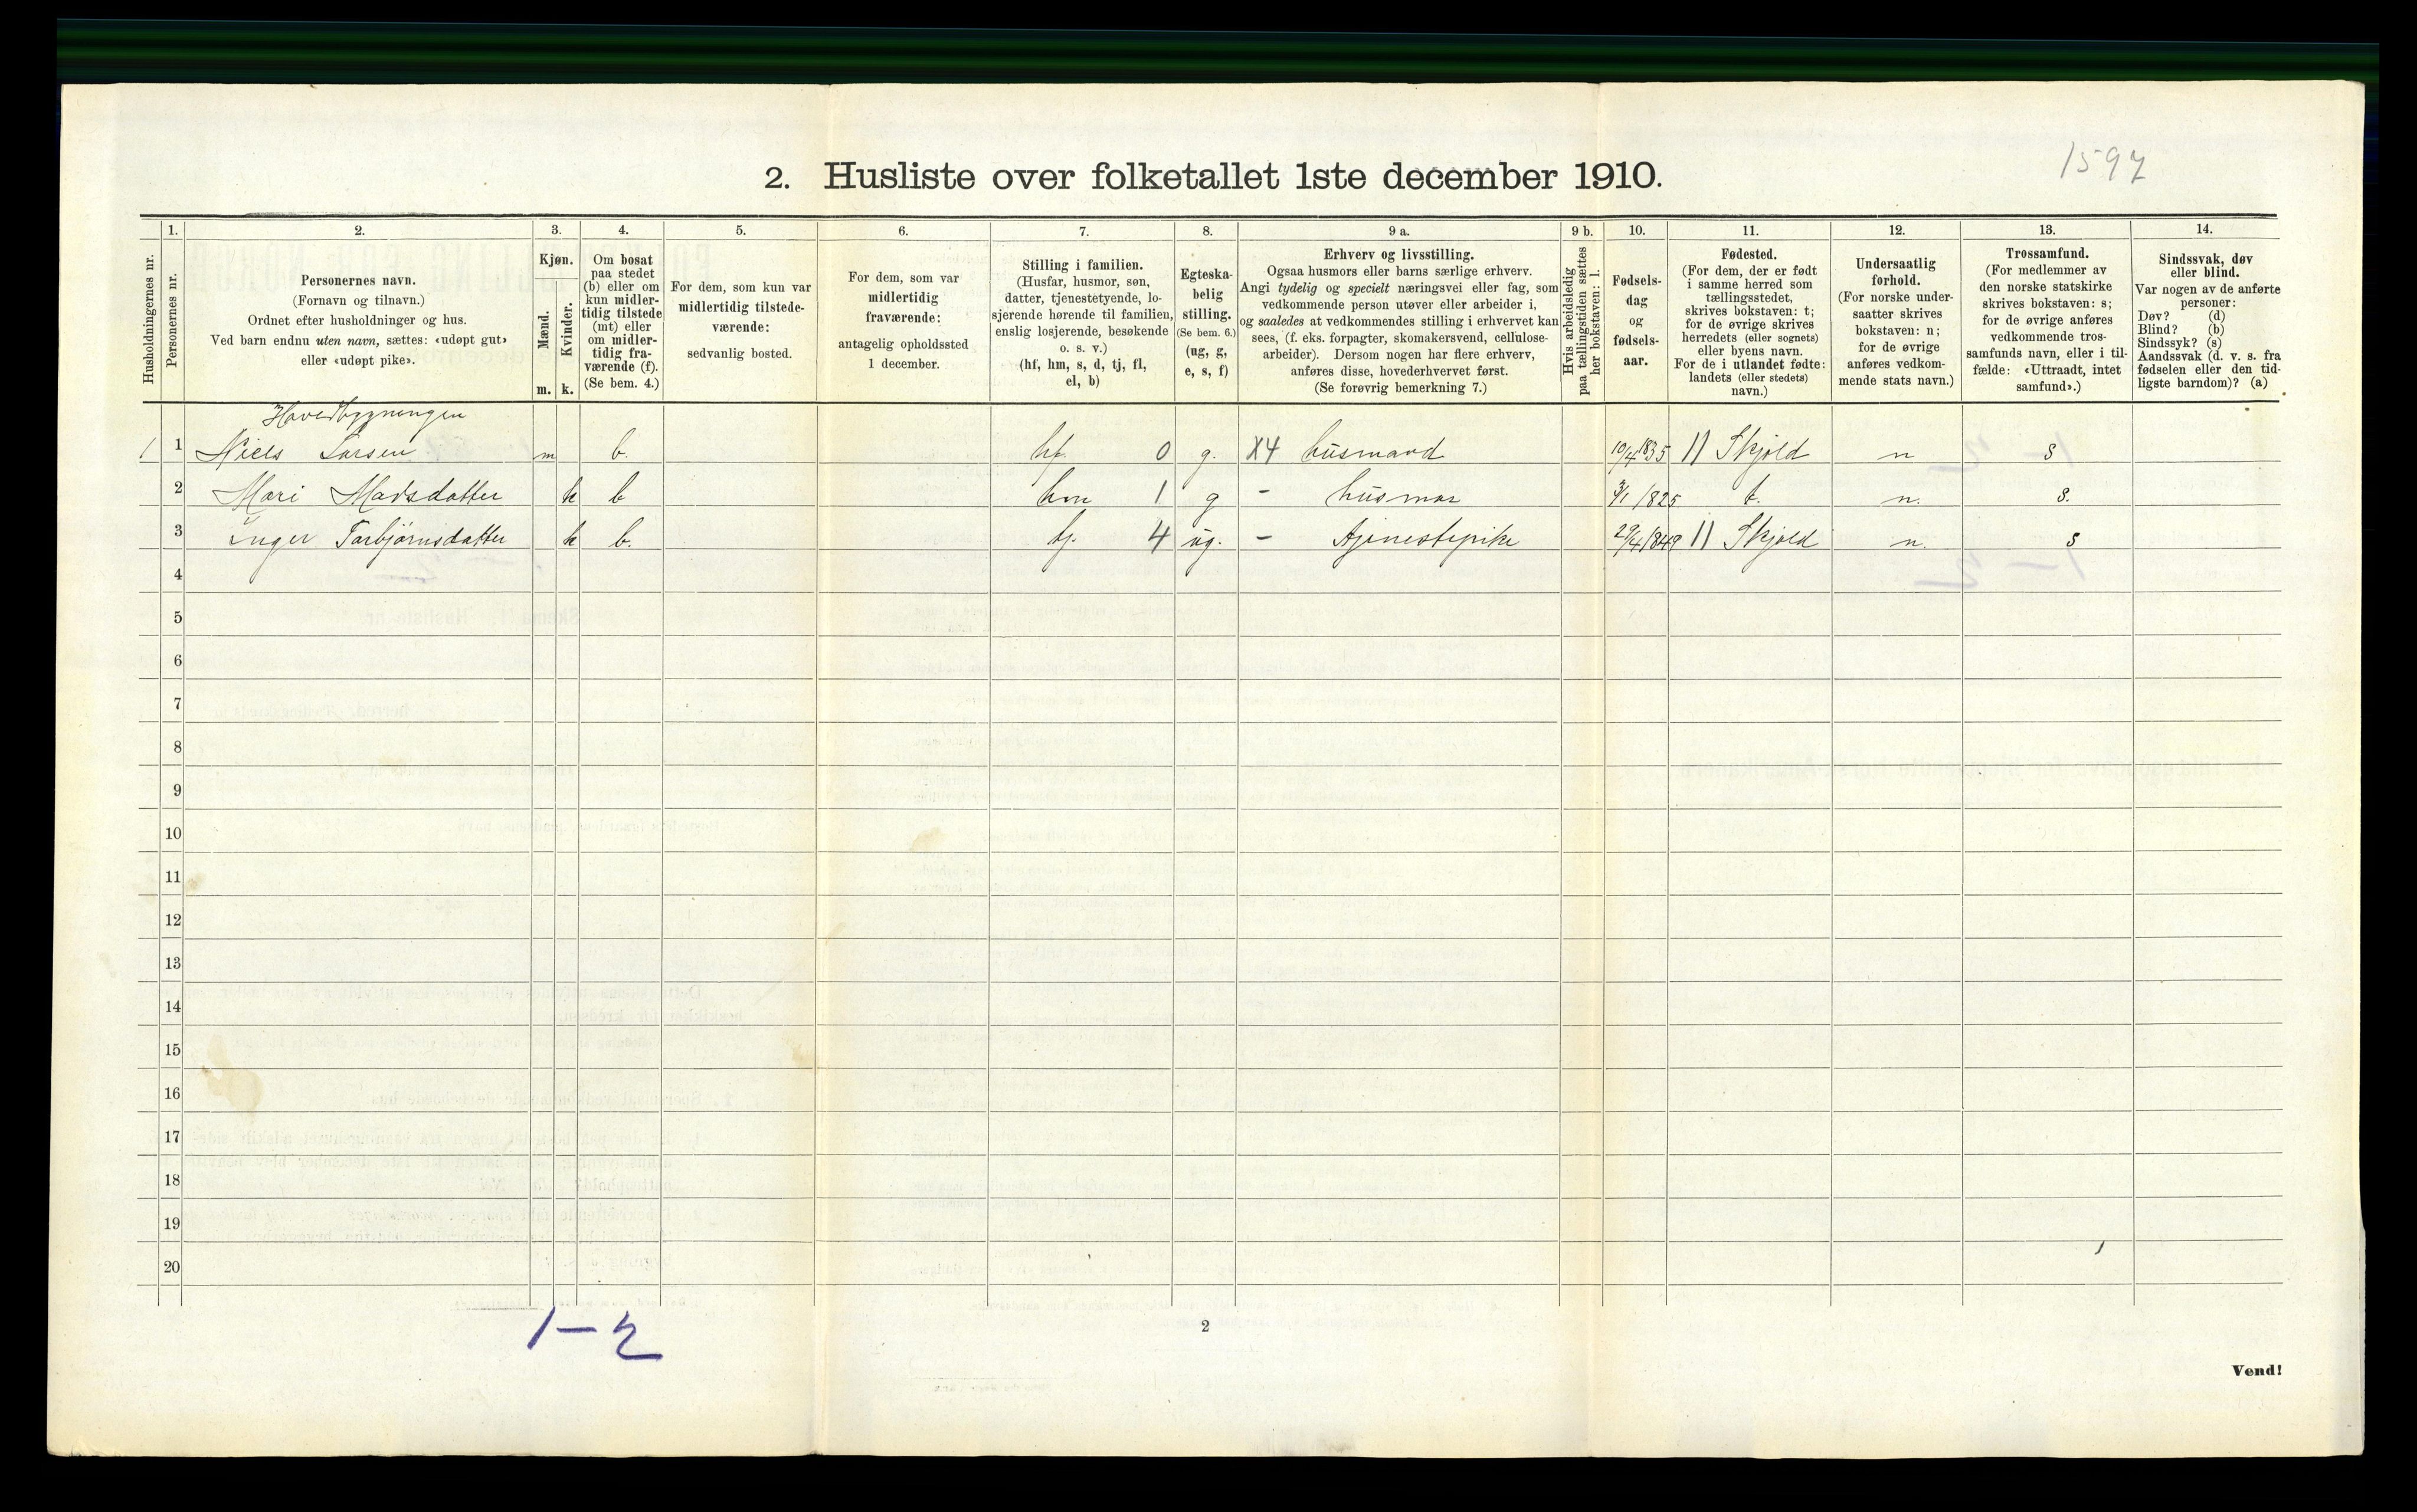 1597
2. Husliste over folketallet 1ste december 1910.
Husholdningernes nr.
1.
Personernes nr.
2.
Personernes navn.
(Fornavn og tilnavn.)
Ordnet efter husholdninger og hus.
Ved barn endnu uten navn, sættes: «udøpt gut»
eller «udøpt pike».
3.
Kjøn.
Mænd.
Kvinder.
m. k.
4.
Om bosat
paa stedet
(b) eller om
kun midler-
tidig tilstede
(mt) eller
om midler-
tidig fra-
værende (f).
(Se bem. 4.)
5.
For dem, som kun var
midlertidig tilstede-
værende:
sedvanlig bosted.
6.
For dem, som var
midlertidig
fraværende:
antagelig opholdssted
1 december.
7.
Stilling i familien.
(Husfar, husmor, søn,
datter, tjenestetyende, lo-
sjerende hørende til familien,
enslig losjerende, besøkende
o. s. v.)
(hf, hm, s, d, tj, fl,
el, b)
8.
Egteska-
belig
stilling.
(Se bem. 6.)
(ug, g,
e, s, f)
9 a.
Erhverv og livsstilling.
Ogsaa husmors eller barns særlige erhverv.
Angi tydelig og specielt næringsvei eller fag, som
vedkommende person utøver eller arbeider i,
og saaledes at vedkommendes stilling i erhvervet kan
sees, (f. eks. forpagter, skomakersvend, cellulose-
arbeider). Dersom nogen har flere erhverv,
anføres disse, hovederhvervet først.
(Se forøvrig bemerkning 7.)
9 b.
Hvis arbeidsledig
paa tællingstiden sættes
her bokstaven: l.
10.
Fødsels-
dag
og
fødsels-
aar.
11.
Fødested.
(For dem, der er født
i samme herred som
tællingsstedet,
skrives bokstaven: t;
for de øvrige skrives
herredets (eller sognets)
eller byens navn.
For de i utlandet fødte:
landets (eller stedets)
navn.)
12.
Undersaatlig
forhold.
(For norske under-
saatter skrives
bokstaven: n;
for de øvrige
anføres vedkom-
mende stats navn.)
13.
Trossamfund.
(For medlemmer av
den norske statskirke
skrives bokstaven: s;
for de øvrige anføres
vedkommende tros-
samfunds navn, eller i til-
fælde: «Uttraadt, intet
samfund».)
14.
Sindssvak, døv
eller blind.
Var nogen av de anførte
personer:
Døv? (d)
Blind? (b)
Sindssyk? (s)
Aandssvak (d. v. s. fra
fødselen eller den tid-
ligste barndom)? (a)
Hovedbygningen
1 1 Niels Larsen m b. hf. 0 g. X4 husmand 10/4 1835 11 Skjold n s
2 Mari Madsdatter k b hm 1 g - husmor 3/1 1825 t. n. s.
3 Inger Torbjørnsdatter k b. tj. 4 ug. - tjenestepike 29/4 1849 11 Skjold n. s
4
5
6
7
8
9
10
11
12
13
14
15
16
17
18
19
20
1-2
2
Vend!